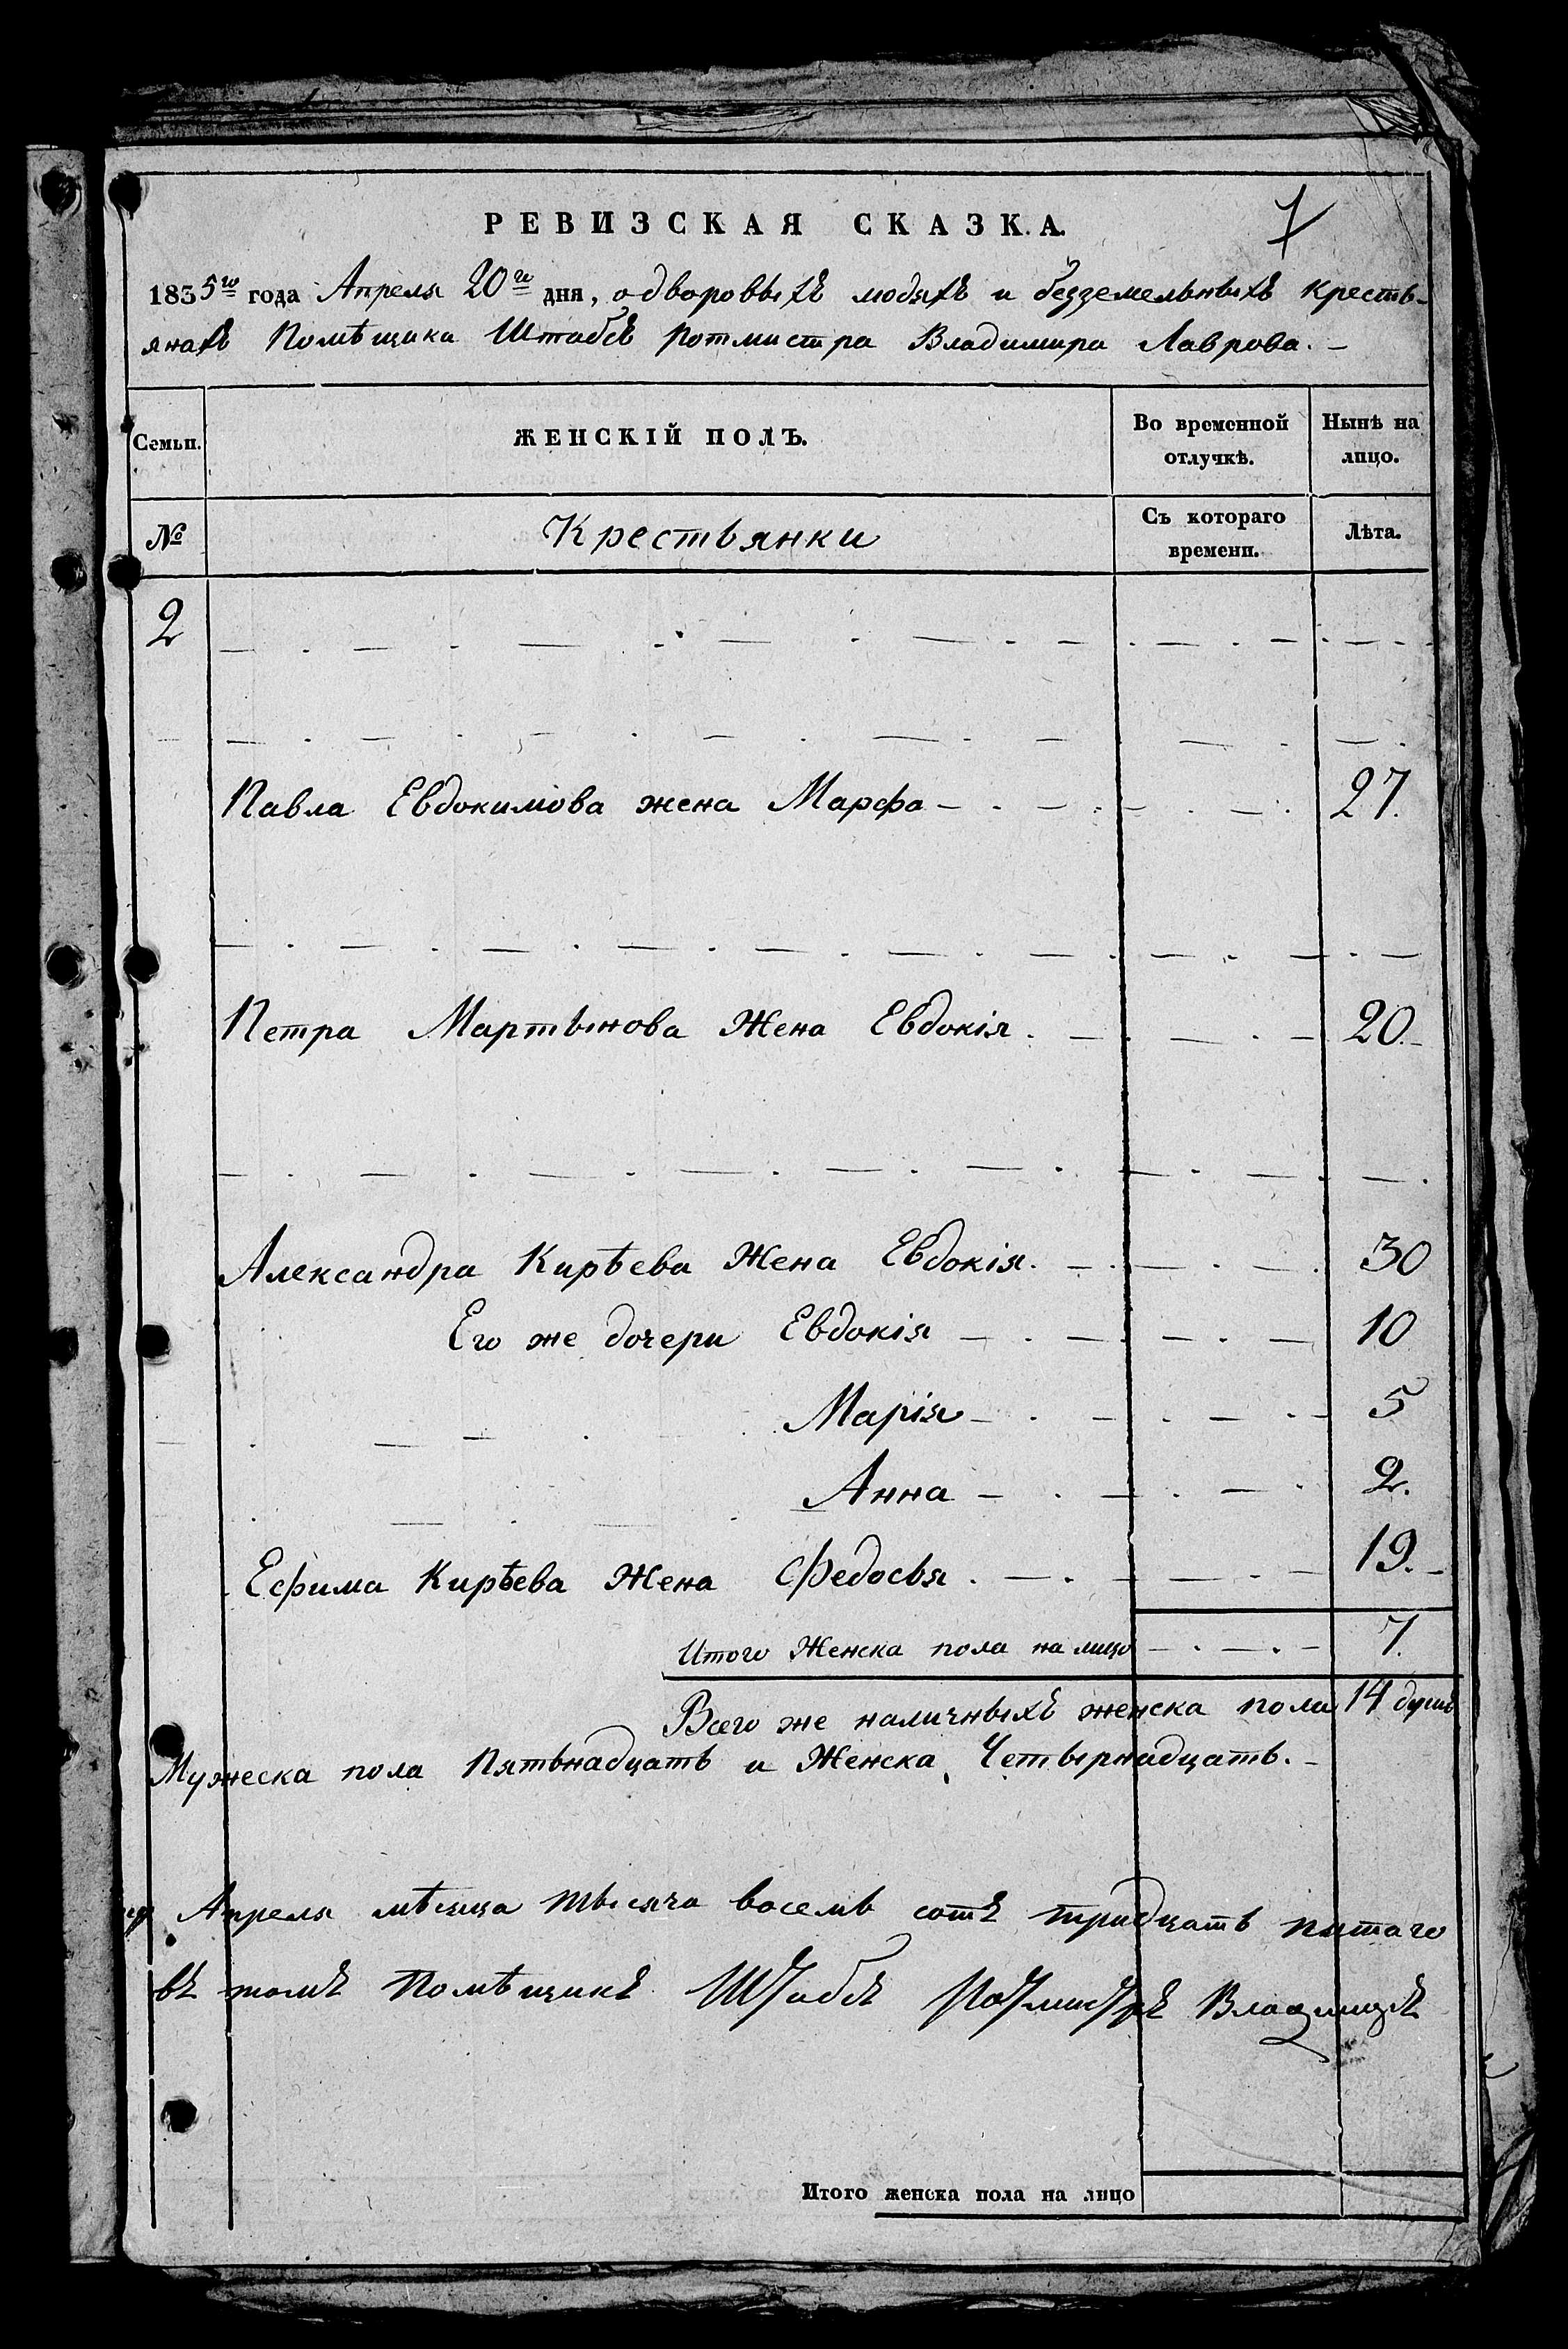 РЕВИЗСКАЯ СКАЗКА.
7
1835го года Апреля 20го дня, о дворовыхъ людяхъ и безземельныхъ кресть-
янахъ Помѣщика Штабсъ Ротмистра Владимира Лаврова. —
Семьи. ЖЕНСКІЙ ПОЛЪ. Во временной отлучкѣ. Нынѣ на лицо.
№ Крестьянки Съ котораго времени. Лѣта.
2
Павла Евдокимова жена Марфа 27.
Петра Мартынова Жена Евдокія 20.
Александра Кирѣева Жена Евдокія 30
Его же дочери Евдокія 10
Марія 5
Анна 2.
Ефима Кирѣева Жена Федосья 19.
Итого Женска пола на лицо 7.
Всего же наличныхъ женска пола 14 душъ
Мужеска пола Пятьнадцать и Женска Четырнадцать. —
Апреля мѣсяца тысяча восемь сотъ тридцать пятаго
въ томъ Помѣщикъ Штабсъ Ротмистръ Владимиръ
Итого женска пола на лицо